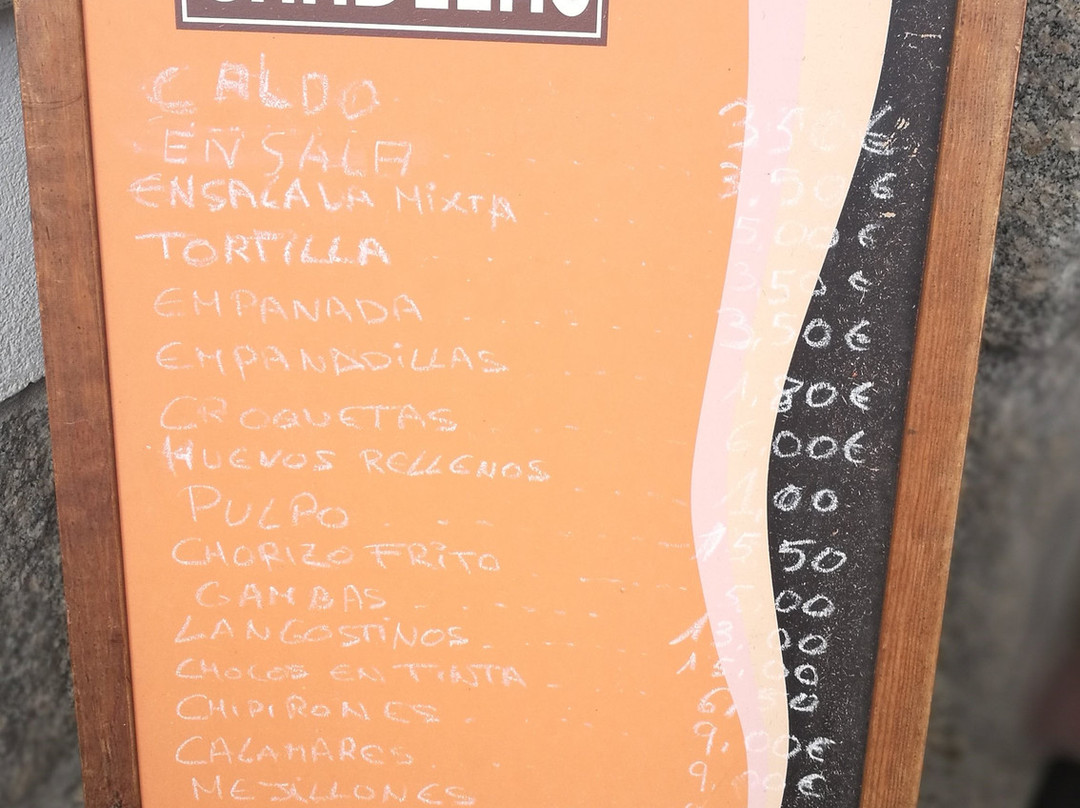 CALDO 3.50€
ENSALA 3.50€
ENSALALA MIXTA 5.00€
TORTILLA 3.50€
EMPANADA 3.50€
EMPANADILLAS 1.80€
CROQUETAS 6.00€
HUEVOS RELLENOS 1.00
PULPO 15.50
CHORIZO FRITO 5.00
GAMBAS 13.00
LANGOSTINOS 15.00
CHOCOS EN TINTA 6.50
CHIPIRONES 9.00€
CALAMARES 9.00€
MEJILLONES